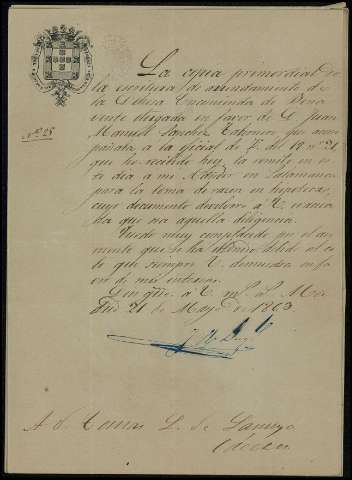 Nº 25
La copia primordial de
la escritura de arrendamiento de
la Dehesa Encomienda de Bena
vente otorgada en favor de D. Juan
Manuel Sanchez que acom
pañaba a la oficial de V. del 19 nº 21
que he recibido hoy, la remito en es
te dia a mi en Salamanca
para la toma de razon en hipotecas,
cuyo documento devolveré a V. evacua
da que sea aquella diligencia.
Quedo muy complacido por el
que se ha debido al ce
lo que siempre V. demuestra en fa
vor de mis intereses.
Dios gue. a V. ms. as. Ma
drid 21 de Mayo de 1863
A D. L. de